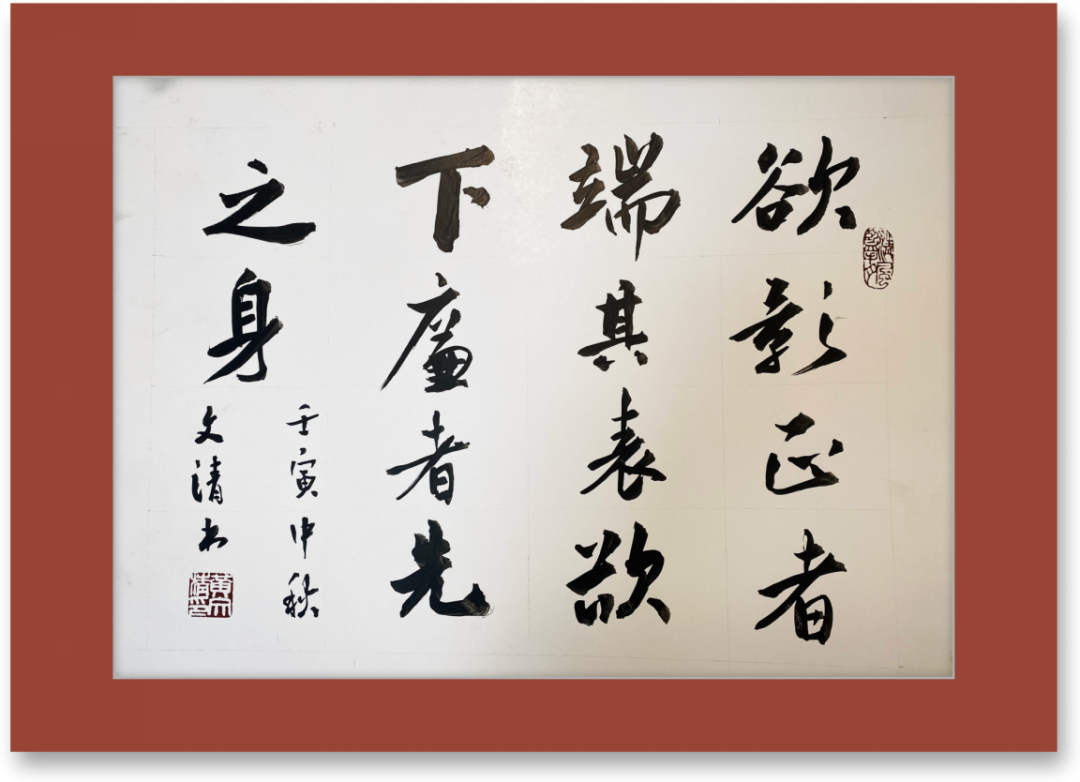 欲影正者
端其表欲
下廉者先
之身
壬寅中秋
文清书
黄文清印